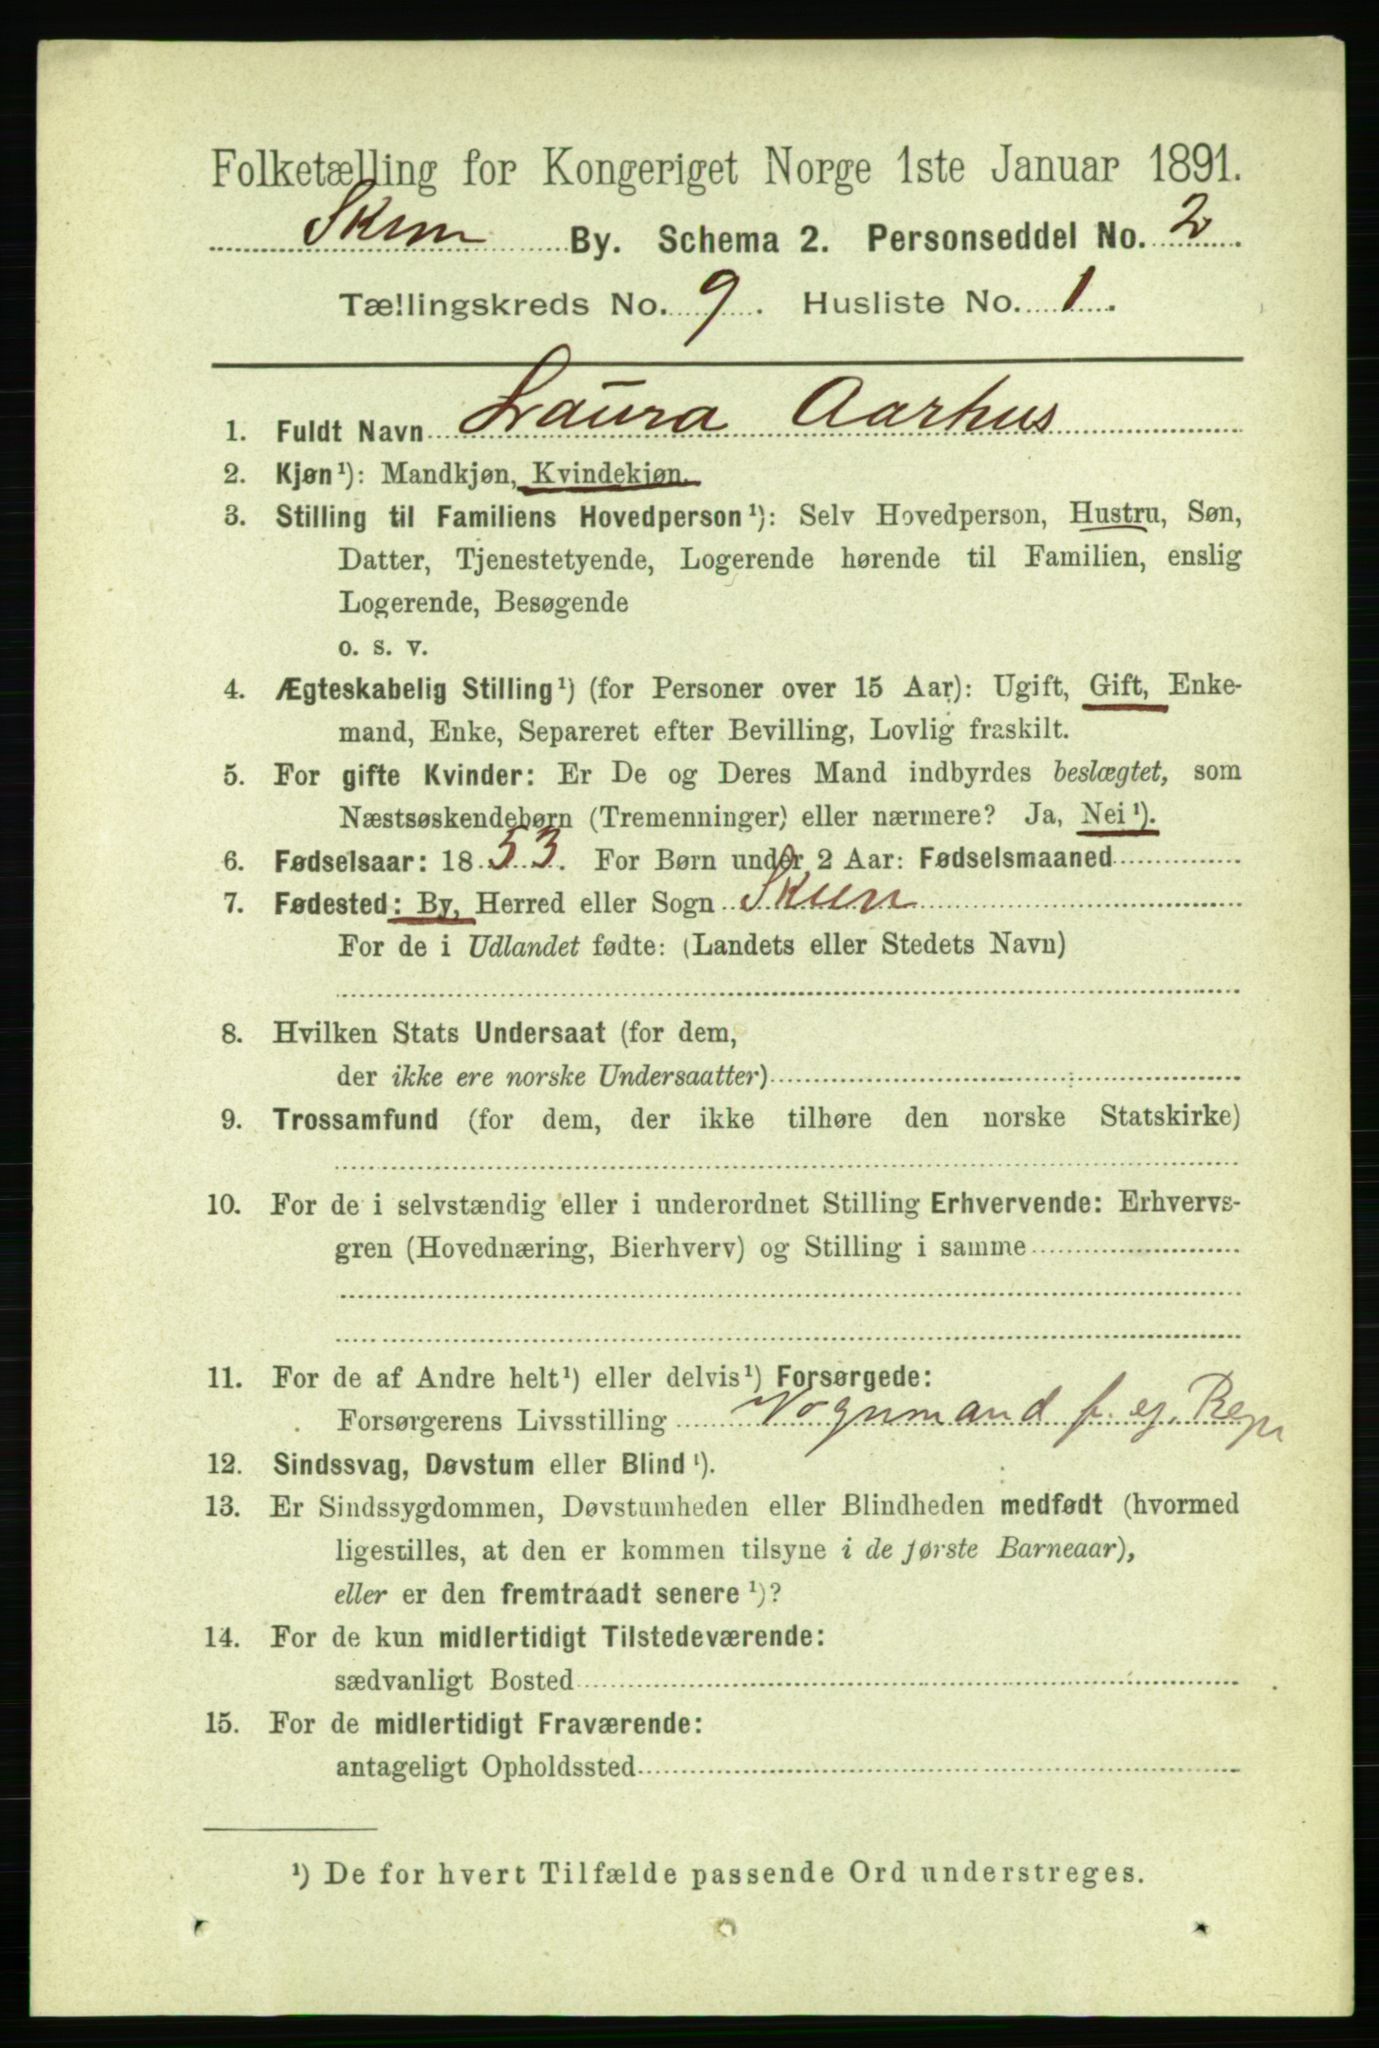 Folketælling for Kongeriget Norge 1ste Januar 1891.
Skien By. Schema 2. Personseddel No. 2.
Tællingskreds No. 9. Husliste No. 1.
1. Fuldt Navn Laura Aarhus
2. Kjøn¹): Mandkjøn, Kvindekjøn.
3. Stilling til Familiens Hovedperson¹): Selv Hovedperson, Hustru, Søn,
Datter, Tjenestetyende, Logerende hørende til Familien, enslig
Logerende, Besøgende
o. s. v.
4. Ægteskabelig Stilling¹) (for Personer over 15 Aar): Ugift, Gift, Enke-
mand, Enke, Separeret efter Bevilling, Lovlig fraskilt.
5. For gifte Kvinder: Er De og Deres Mand indbyrdes beslægtet, som
Næstsøskendebørn (Tremenninger) eller nærmere? Ja, Nei¹).
6. Fødselsaar: 1853. For Børn under 2 Aar: Fødselsmaaned
7. Fødested: By, Herred eller Sogn Skien
For de i Udlandet fødte: (Landets eller Stedets Navn)
8. Hvilken Stats Undersaat (for dem,
der ikke ere norske Undersaatter)
9. Trossamfund (for dem, der ikke tilhøre den norske Statskirke)
10. For de i selvstændig eller i underordnet Stilling Erhvervende: Erhvervs-
gren (Hovednæring, Bierhverv) og Stilling i samme
11. For de af Andre helt¹) eller delvis¹) Forsørgede:
Forsørgerens Livsstilling Vognmand f. eg. Regn
12. Sindssvag, Døvstum eller Blind¹).
13. Er Sindssygdommen, Døvstumheden eller Blindheden medfødt (hvormed
ligestilles, at den er kommen tilsyne i de første Barneaar),
eller er den fremtraadt senere¹)?
14. For de kun midlertidigt Tilstedeværende:
sædvanligt Bosted
15. For de midlertidigt Fraværende:
antageligt Opholdssted
¹) De for hvert Tilfælde passende Ord understreges.